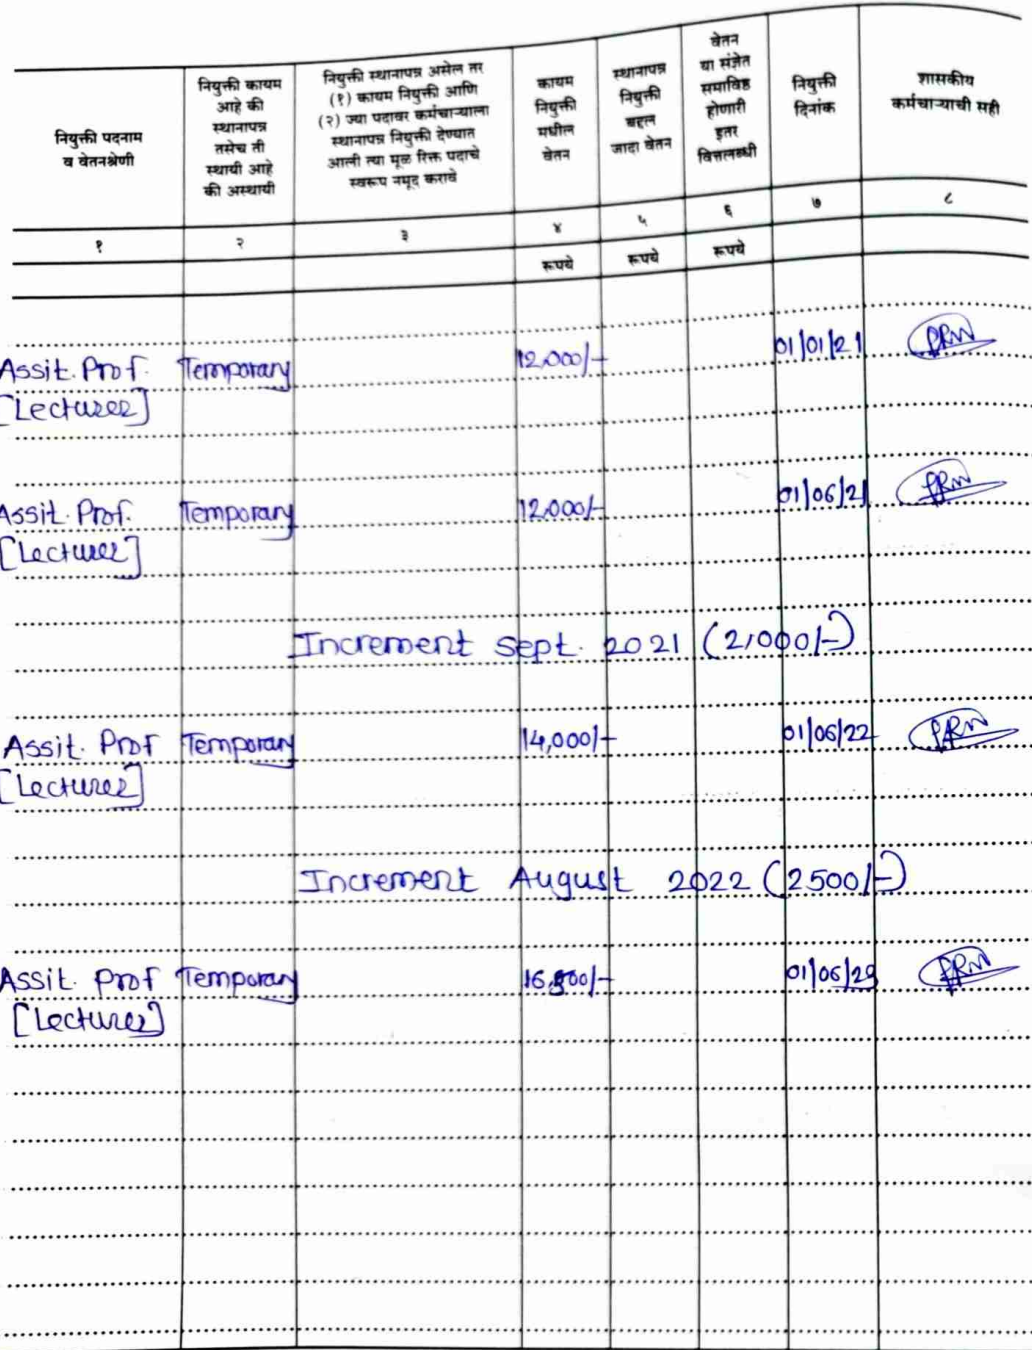 नियुक्ती पदनाम
व वेतनश्रेणी
नियुक्ती कायम
आहे की
स्थानापन्न
तसेच ती
स्थायी आहे
की अस्थायी
नियुक्ती स्थानापन्न असेल तर
(१) कायम नियुक्ती आणि
(२) ज्या पदावर कर्मचाऱ्याला
स्थानापन्न नियुक्ती देण्यात
आली त्या मूळ रिक्त पदाचे
स्वरूप नमूद करावे
कायम
नियुक्ती
मधील
वेतन
स्थानापन्न
नियुक्ती
बद्दल
जादा वेतन
वेतन
या संज्ञेत
समाविष्ठ
होणारी
इतर
वित्तलब्धी
नियुक्ती
दिनांक
शासकीय
कर्मचाऱ्याची सही
१ २ ३ ४ ५ ६ ७ ८
रूपये रूपये रूपये
Assit. Prof. Temporary 12,000/- 01/01/21
[Lecturer]
Assit. Prof. Temporary 12,000/- 01/06/21
[Lecturer]
Increment Sept. 2021 (2,000/-)
Assit. Prof Temporary 14,000/- 01/06/22
[Lecturer]
Increment August 2022 (2500/-)
Assit. Prof Temporary 16,500/- 01/06/23
[Lecturer]